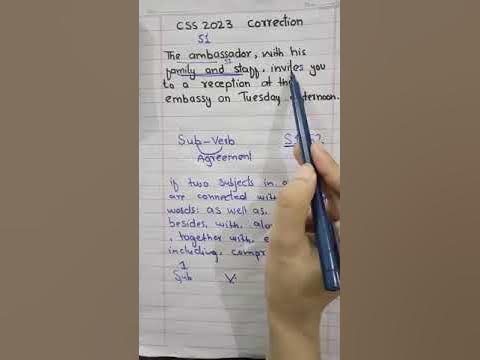 CSS 2023 Correction
S1
The ambassador, with his
S2
family and staff, invites you
to a reception at the
embassy on Tuesday afternoon.
Sub-Verb
Agreement
if two subjects in
are connected with
words: as well as,
besides, with,
, together with,
including,
1
Sub V